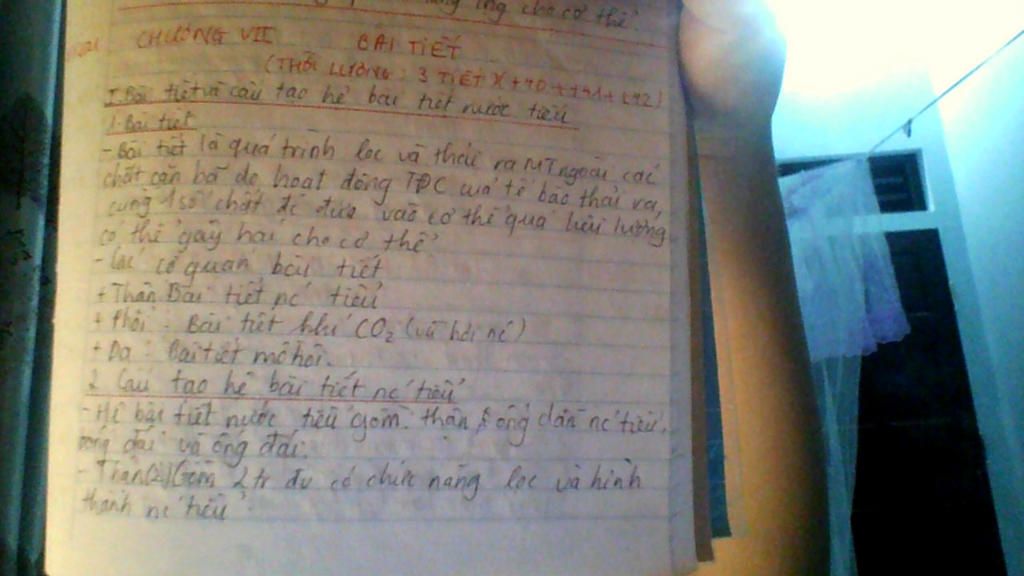 cho cơ thể.
CHƯƠNG VII BÀI TIẾT
(THỜI LƯỢNG: 3 TIẾT
I. Bài tiết và cấu tạo hệ bài tiết nước tiểu
1. Bài tiết
- Bài tiết là quá trình lọc và thải ra MT ngoài các
chất cặn bã do hoạt động TĐC của tế bào thải ra,
cùng 1 số chất đc đưa vào cơ thể quá liều lượng
có thể gây hại cho cơ thể
- Các cơ quan bài tiết
+ Thận Bài tiết nc tiểu
+ Phổi: Bài tiết khí CO2 (và hơi nc)
+ Da: Bài tiết mồ hôi.
2. Cấu tạo hệ bài tiết nc tiểu
- Hệ bài tiết nước tiểu gồm: thận, ống dẫn nc tiểu,
bóng đái và ống đái.
- Thận (2) Gồm 2 tr đv có chức năng lọc và hình
thành nc tiểu